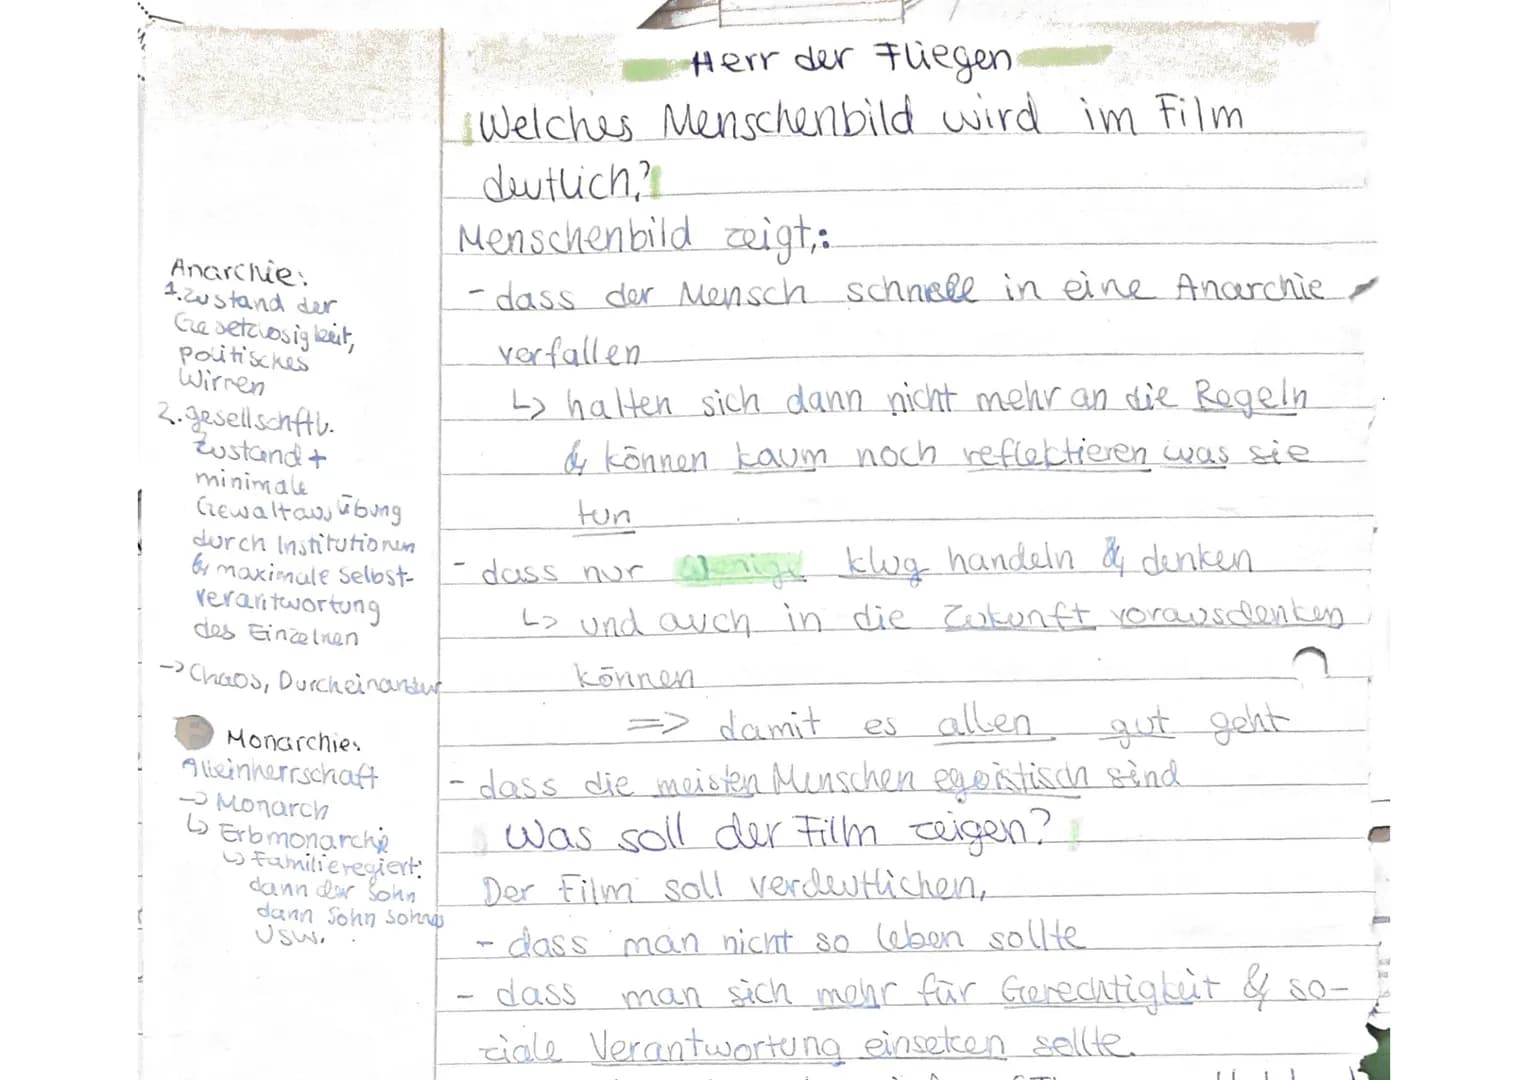 Herr der Fliegen
Welches Menschenbild wird im Film
deutlich?
Menschenbild zeigt,:
- dass der Mensch schnell in eine Anarchie
verfallen
↳ halten sich dann nicht mehr an die Regeln
& können kaum noch reflektieren was sie
tun
- dass nur wenige klug handeln & denken
↳ und auch in die Zukunft vorausdenken
können
=> damit es allen gut geht
- dass die meisten Menschen egoistisch sind
Was soll der Film zeigen?
Der Film soll verdeutlichen,
- dass man nicht so leben sollte
- dass man sich mehr für Gerechtigkeit & so-
ziale Verantwortung einsetzen sollte.
Anarchie:
1. Zustand der
Gesetzlosigkeit,
politisches
Wirren
2. gesellschftl.
Zustand +
minimale
Gewaltausübung
durch Institutionen
& maximale Selbst-
verantwortung
des Einzelnen
-> Chaos, Durcheinander
Monarchie:
Alleinherrschaft
-> Monarch
↳ Erbmonarchie
↳ Familie regiert:
dann der Sohn
dann Sohn Sohnes
usw.